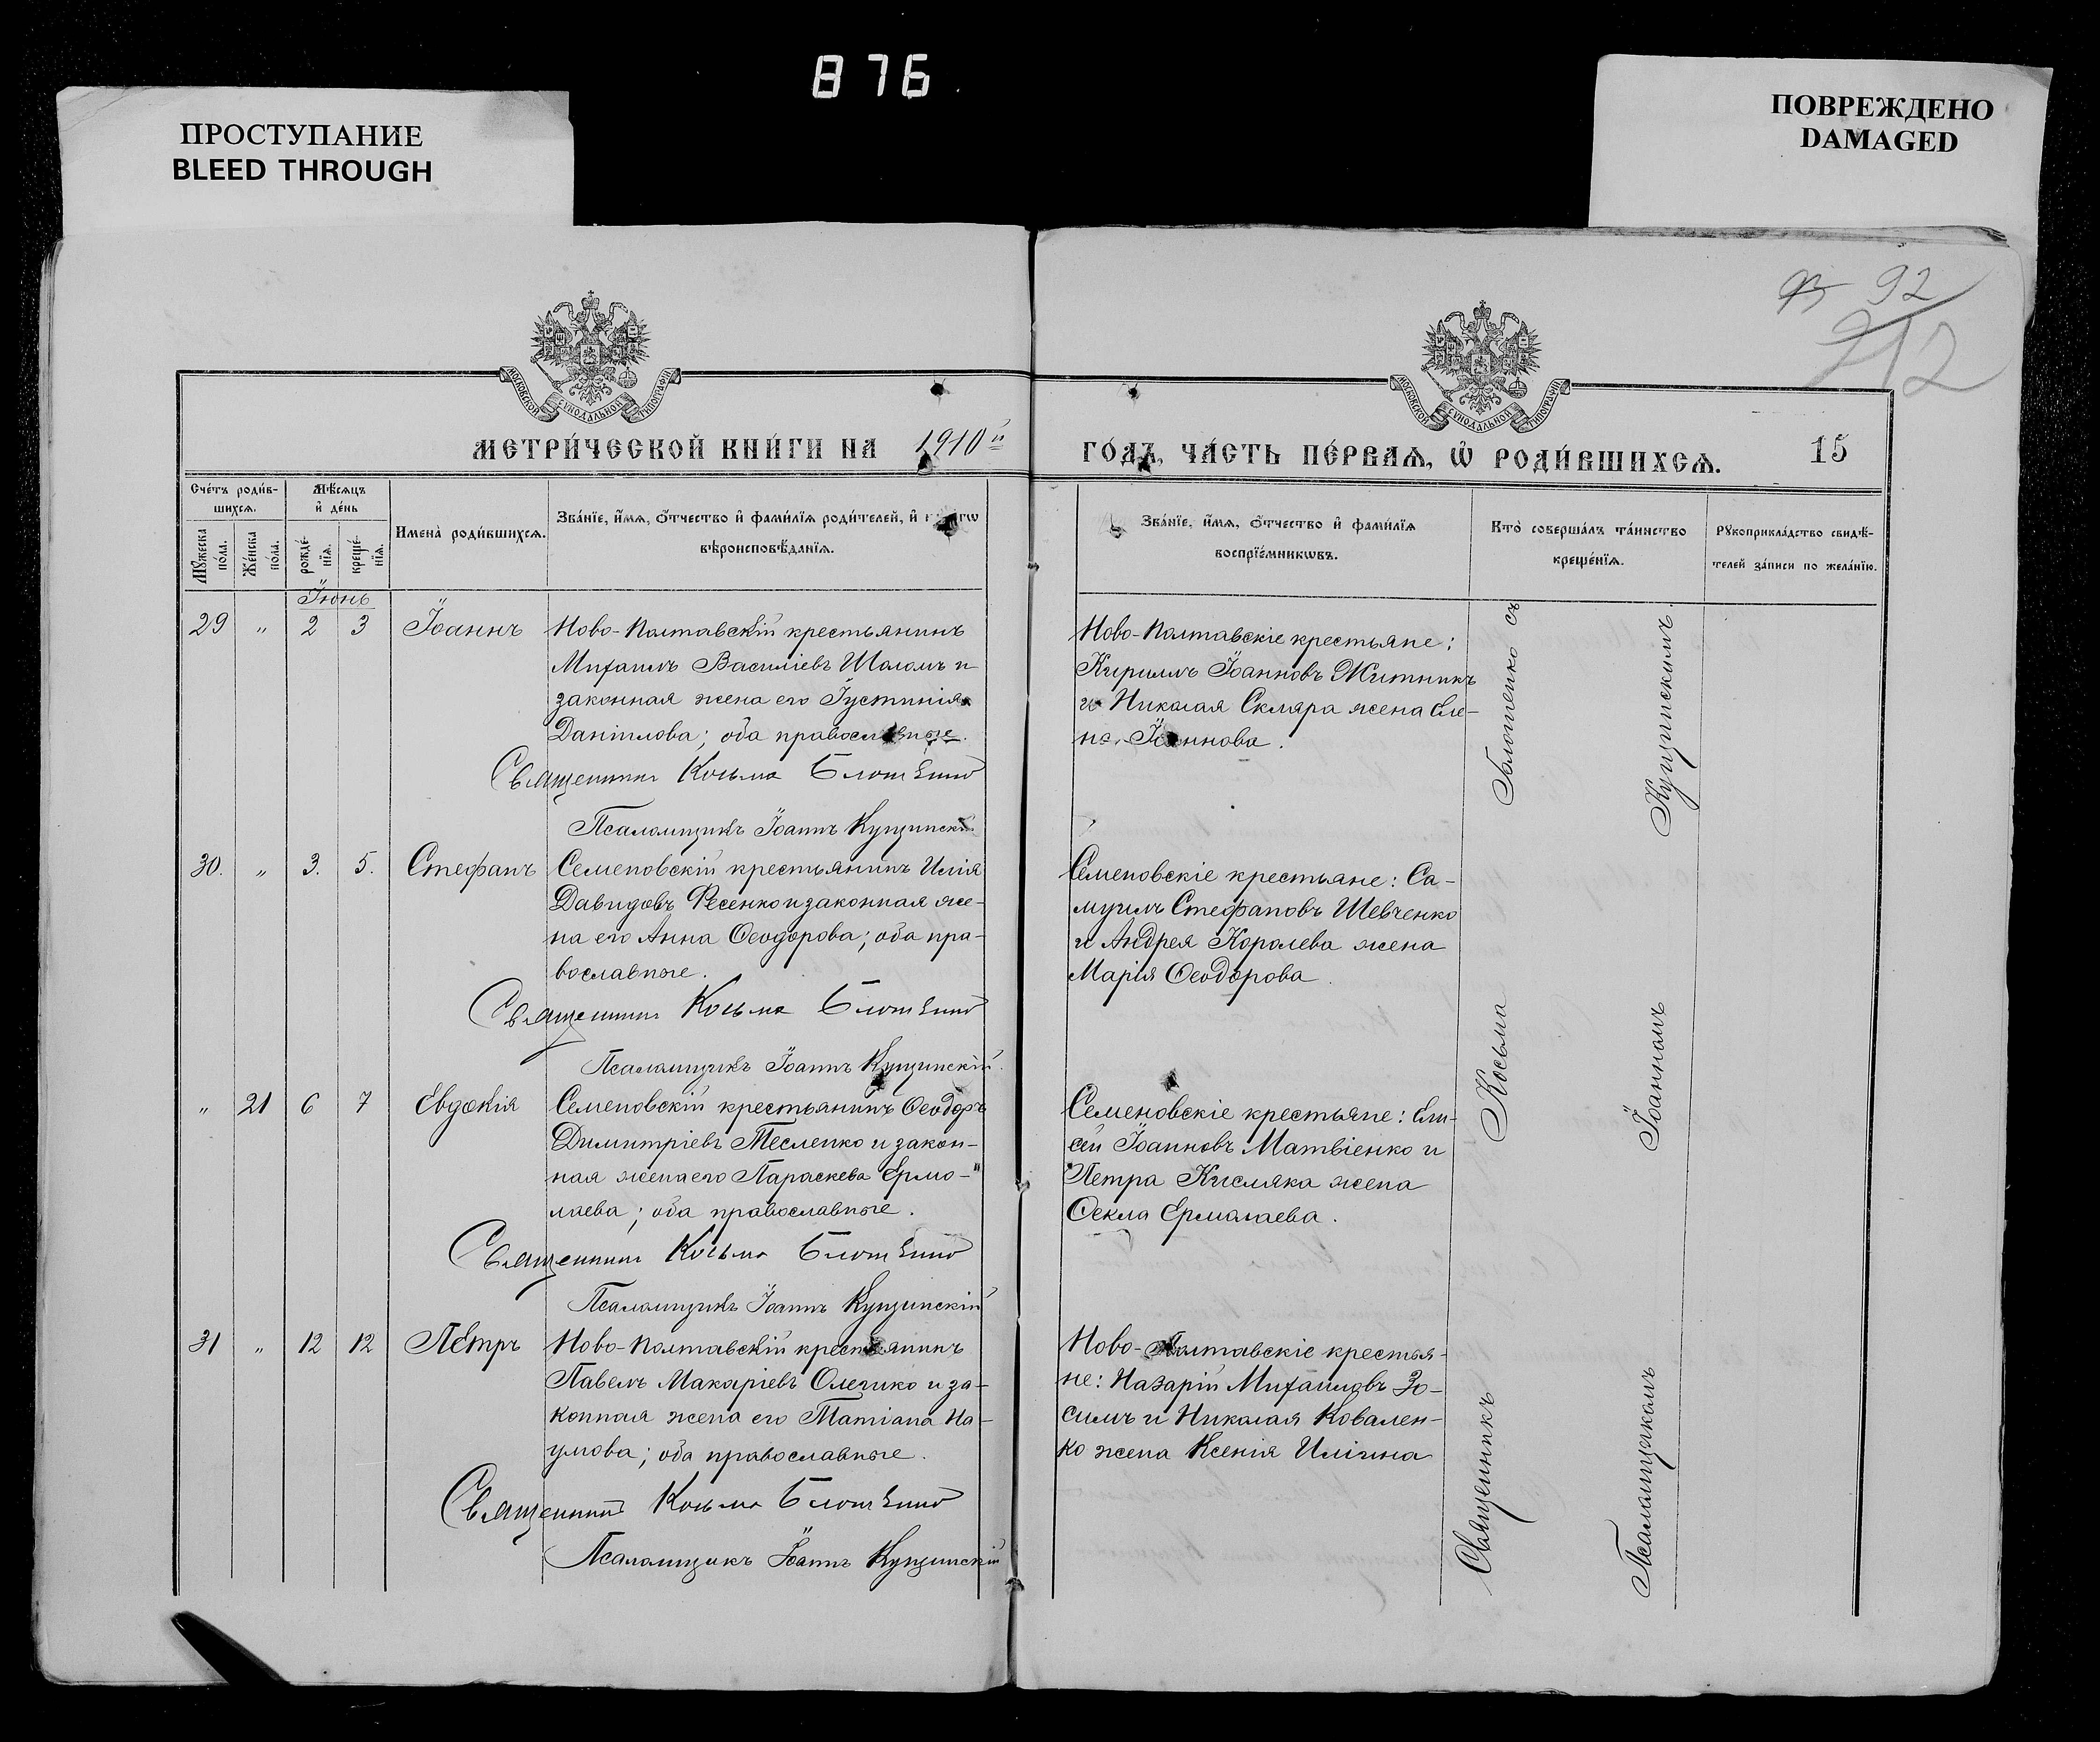 876
ПРОСТУПАНИЕ
BLEED THROUGH
ПОВРЕЖДЕНО
DAMAGED
92
212
МОСКОВСКОЙ СѴНОДАЛЬНОЙ ТИПОГРАФІИ
МОСКОВСКОЙ СѴНОДАЛЬНОЙ ТИПОГРАФІИ
МЕТРИ́ЧЕСКОЙ КНИ́ГИ НА 1910й
ГО́ДЪ, ЧА́СТЬ ПЕ́РВАѦ, Ѡ҆ РОДИ́ВШИХСѦ. 15
Сче́тъ роди́в-
шихсѧ.
Мѣ́сѧцъ
и҆ де́нь
Мꙋ́жеска по́ла.
Же́нска по́ла.
рожде́-
нїѧ.
креще́-
нїѧ.
Имена̀ роди́вшихсѧ.
Зва́нїе, и҆́мѧ, ѻ҆́тчество и҆ фами́лїѧ роди́телей, и҆
вѣроисповѣ́данїѧ.
Зва́нїе, и҆́мѧ, ѻ҆́тчество и҆ фами́лїѧ
воспрїе́мникѡвъ.
Кто̀ соверша́лъ та́инство
креще́нїѧ.
Рꙋкоприкла́дство свидѣ́-
телей за́писи по жела́нїю.
Іюнь
29 " 2 3 Іоаннъ
Ново-Полтавскій крестьянинъ
Михаилъ Василіевъ Шаломъ и
законная жена его Іустинія
Даніилова; оба православные.
Священникъ Косьма
Псаломщикъ Іоаннъ Кущинскій
Ново-Полтавскіе крестьяне:
Кириллъ Іоанновъ Житникъ
и Николая Скляра жена Еле-
на Іоаннова.
30. " 3. 5. Стефанъ
Семеновскій крестьянинъ Илія
Давидовъ Фесенко и законная же-
на его Анна Ѳеодорова; оба пра-
вославные.
Священникъ Косьма
Псаломщикъ Іоаннъ Кущинскій
Семеновскіе крестьяне: Са-
муилъ Стефановъ Шевченко
и Андрея Королева жена
Марія Ѳеодорова
" 21 6 7 Евдокія
Семеновскій крестьянинъ Ѳеодоръ
Димитріевъ Тесленко и закон-
ная жена его Параскева Ермо-
лаева; оба православные.
Священникъ Косьма
Псаломщикъ Іоаннъ Кущинскій
Семеновскіе крестьяне: Ели-
сей Іоанновъ Матвіенко и
Петра Кисляка жена
Ѳекла Ермолаева.
31 " 12 12 Петръ
Ново-Полтавскій крестьянинъ
Павелъ Макаріевъ и за-
конная жена его Татіана На-
умова; оба православные.
Священникъ Косьма
Псаломщикъ Іоаннъ Кущинскій
Ново-Полтавскіе крестья-
не: Назарій Михаиловъ Зо-
симъ и Николая Ковален-
ко жена Ксенія Иліина
Священникъ Косьма съ
Псаломщикомъ Іоанномъ Кущинскимъ.